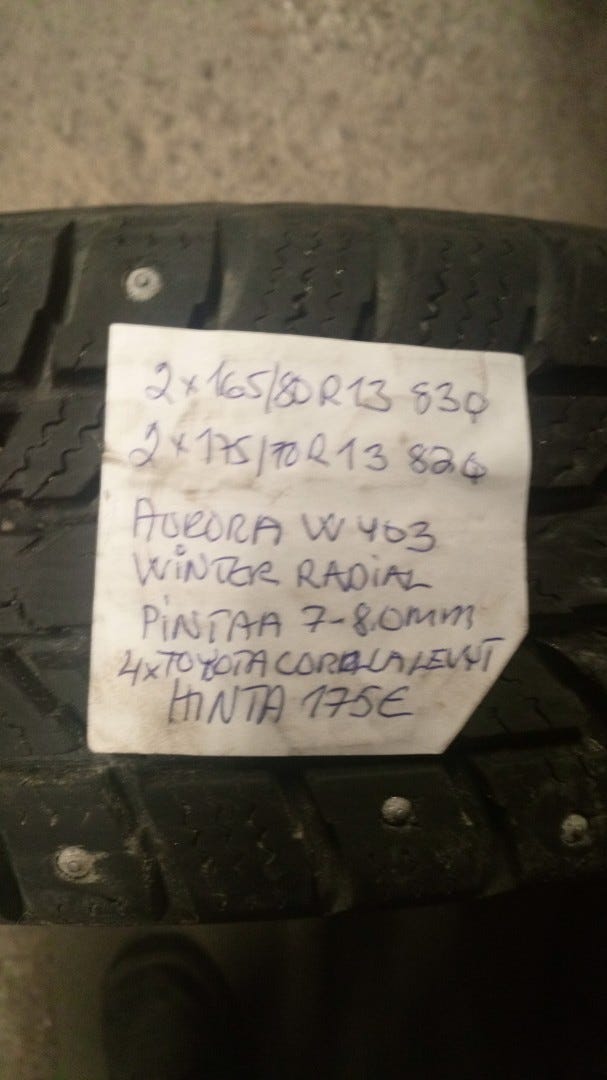 2 x 165/80 R 13 83Q
2 x 175/70 R 13 82Q
AURORA W 403
WINTER RADIAL
PINTAA 7-8.0mm
4x TOYOTA COROLLA LEVYT
HINTA 175€